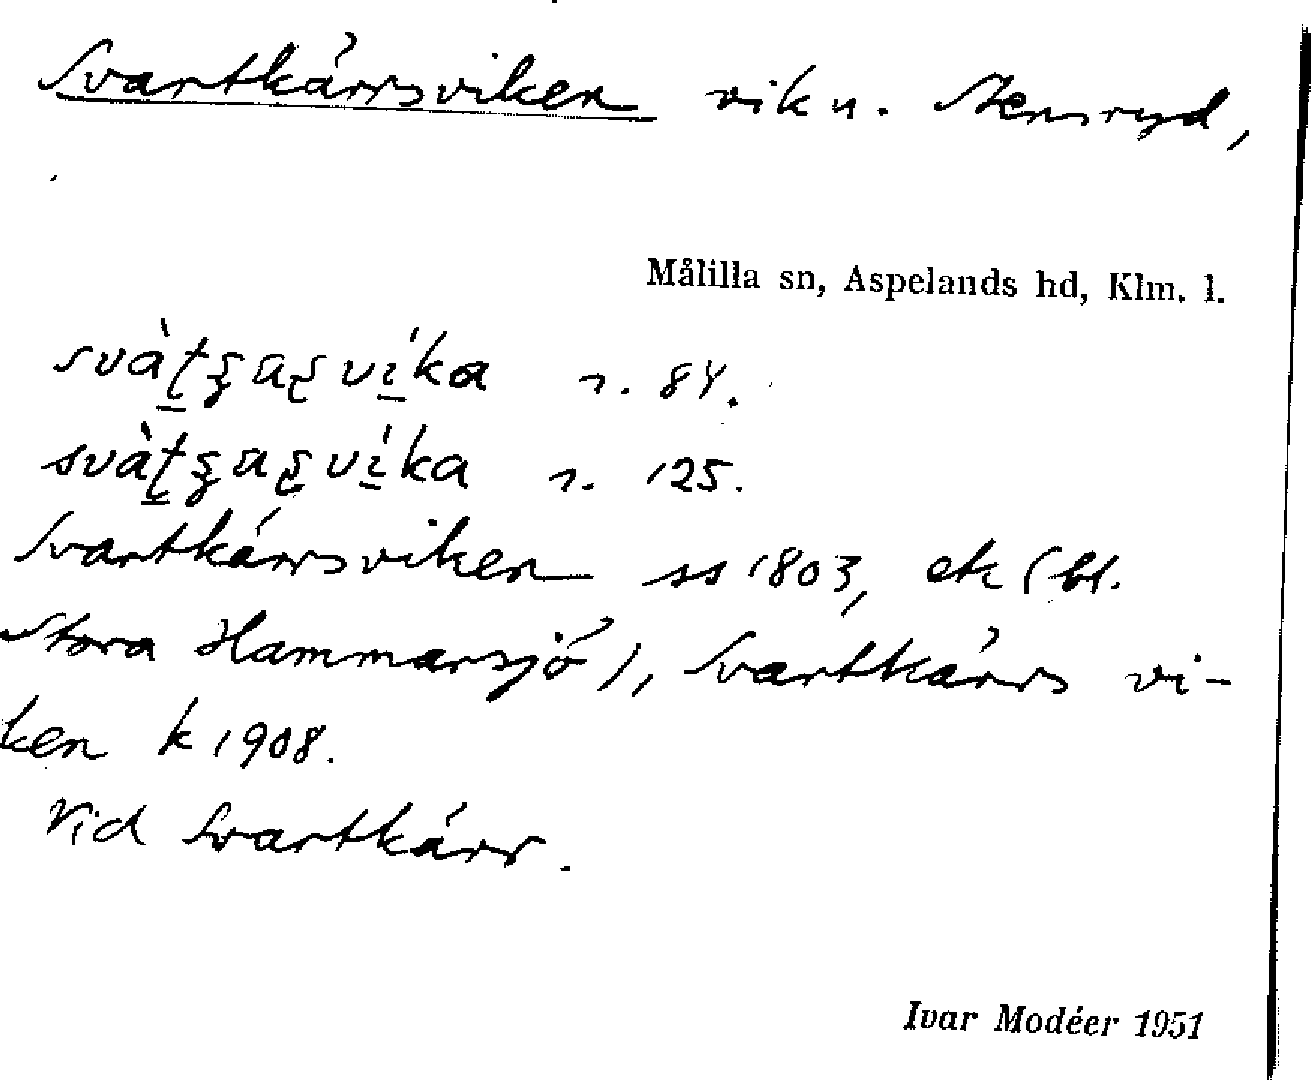 Svartkärrsviken vik n. Stensryd,
Målilla sn, Aspelands hd, Klm. l.
s. 84.
s. 125.
Svartkärrsviken ss 1803, ek (bl.
Stora Hammarsjö), Svartkärrs vi-
ken k 1908.
Vid Svartkärr.
Ivar Modéer 1951